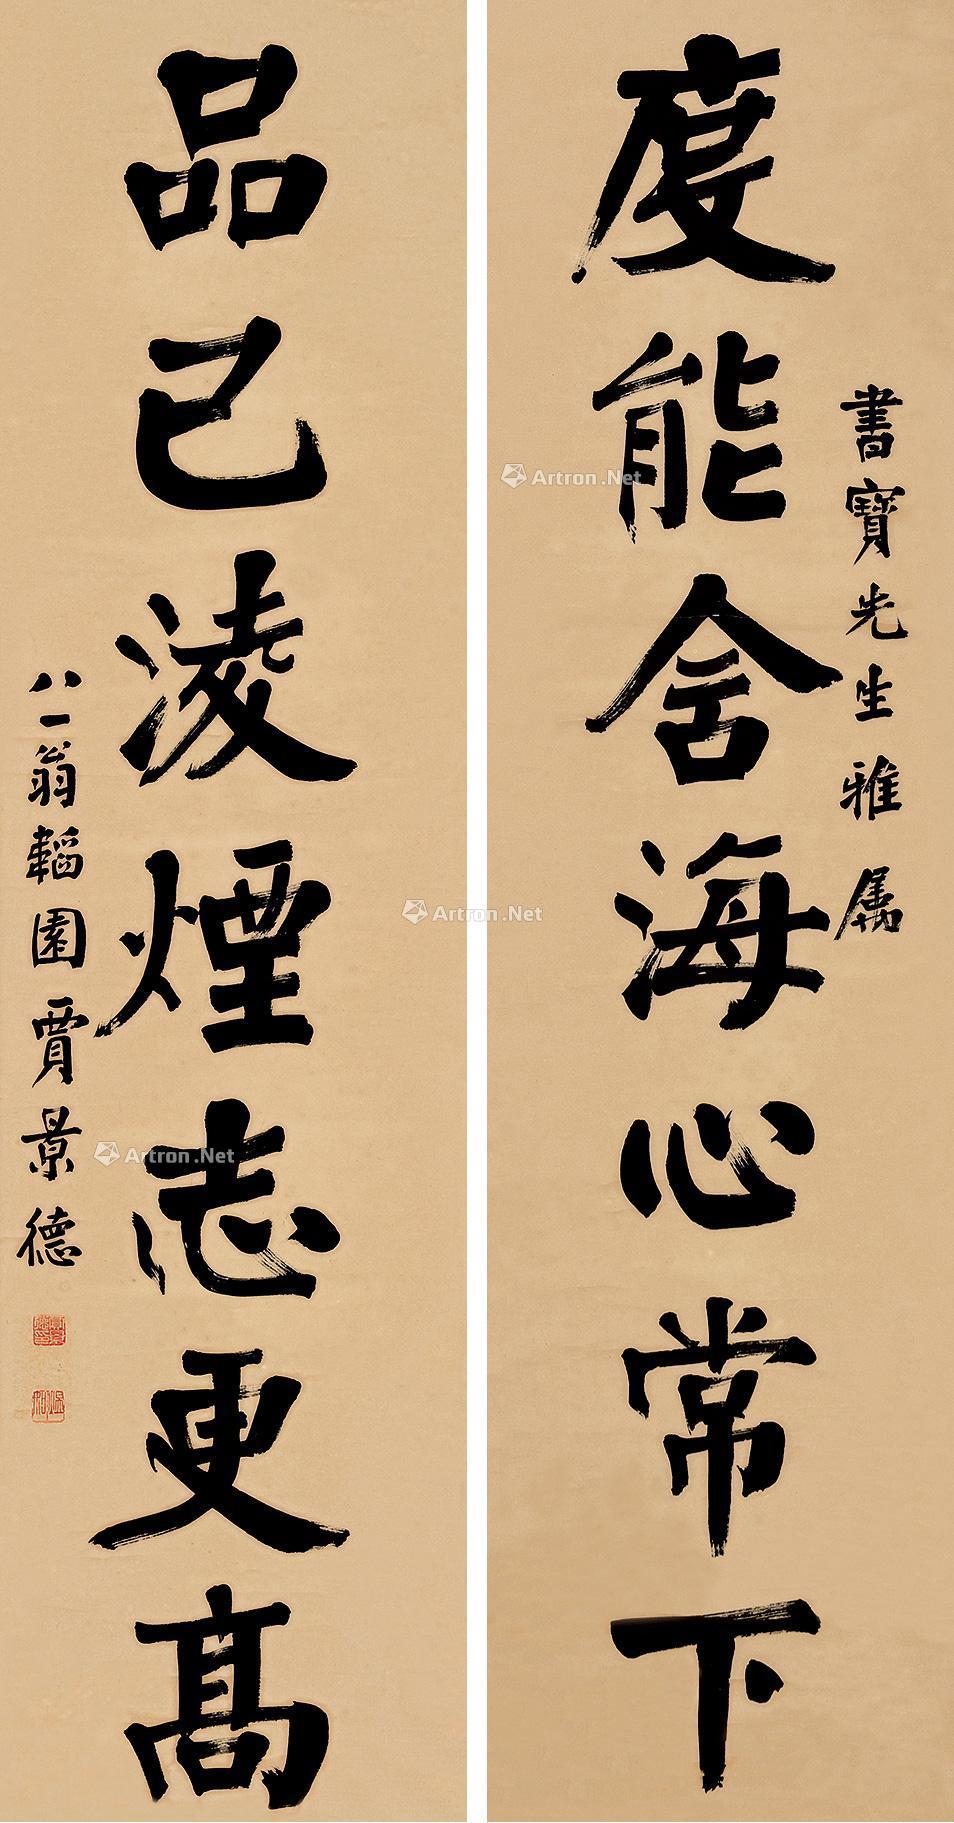 度能含海心常下
書寶先生雅属
品已淩煙志更髙
八一翁韜園賈景德
Artron.Net
Artron.Net
Artron.Net